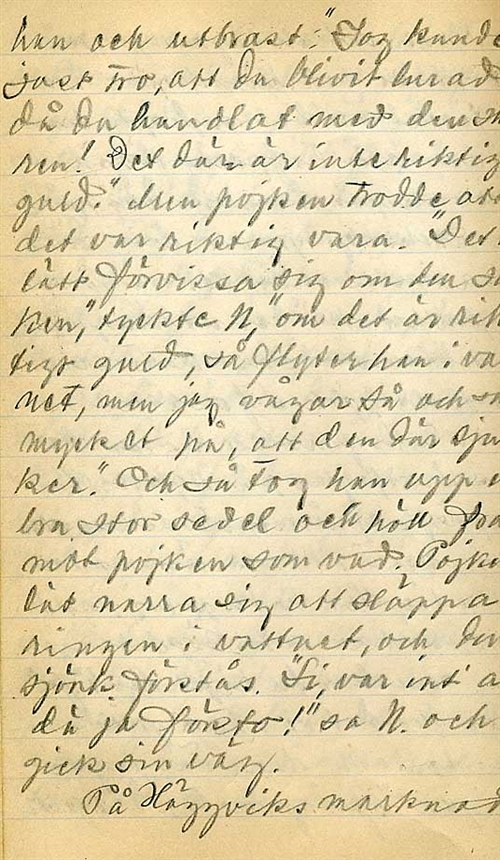 han och utbrast: "Jog kunde
just tro, att du blivit lurad
då du handlat med den
ren! Det där är inte riktig
guld." Men pojken trodde att
det var riktig vara. "Det
lätt förvissa sig om den sa
ken," tyckte N, "om det är rik
tigt guld, så flyter han i va
net, men jag vågar så och så
mycket på, att den där sju
ker." Och så tog han upp e
bra stor sedel och höll fra
mot pojken som vad. Pojke
lät narra sig att släppa
ringen i vattnet, och den
sjönk förstås. "Si, var int' a
då ja försto!" sa N. och
gick sin väg.
På Häggviks marknad